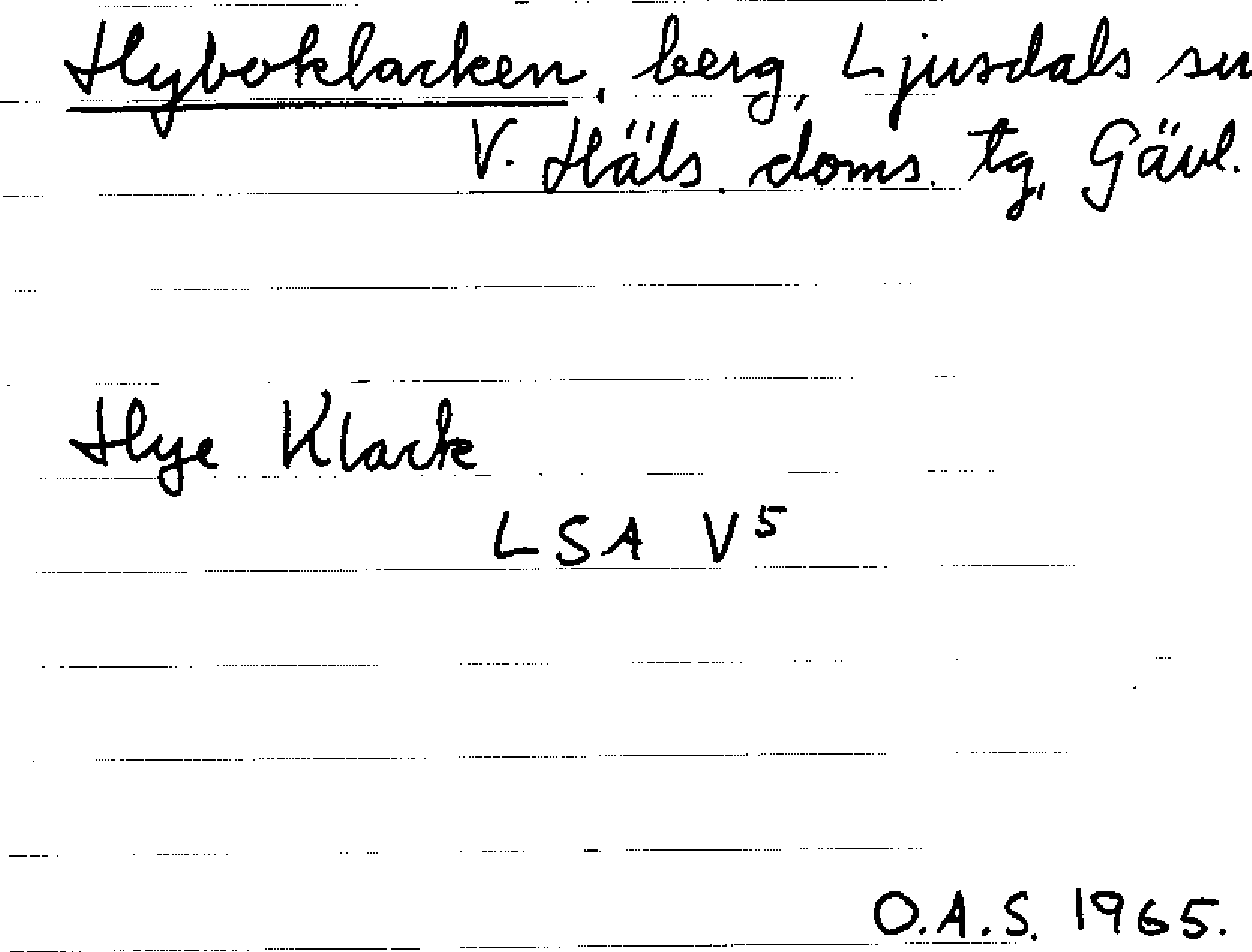 Hyboklacken, berg, Ljusdals sn
V. Häls. doms. tg, Gävl.
Hye Klack
LSA V5
O.A.S. 1965.